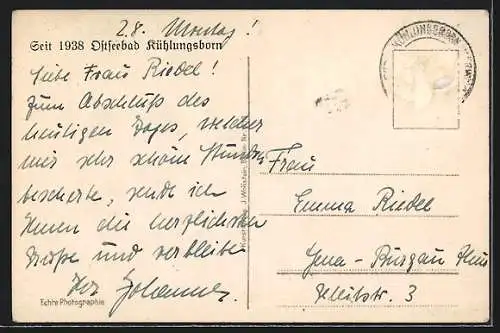 2.8. Montag!
Seit 1938 Ostseebad Kühlungsborn
Liebe Frau Riedel!
Zum Abschluß des
heutigen Tages, welcher
mir sehr schöne Stunden
bescherte, sende ich
Ihnen die herzlichsten
Grüße und verbleibe
Ihr Johannes
Echte Photographie
KÜHLUNGSBORN
Frau
Emma Riedel
Jena - Burgau
Kleiststr. 3